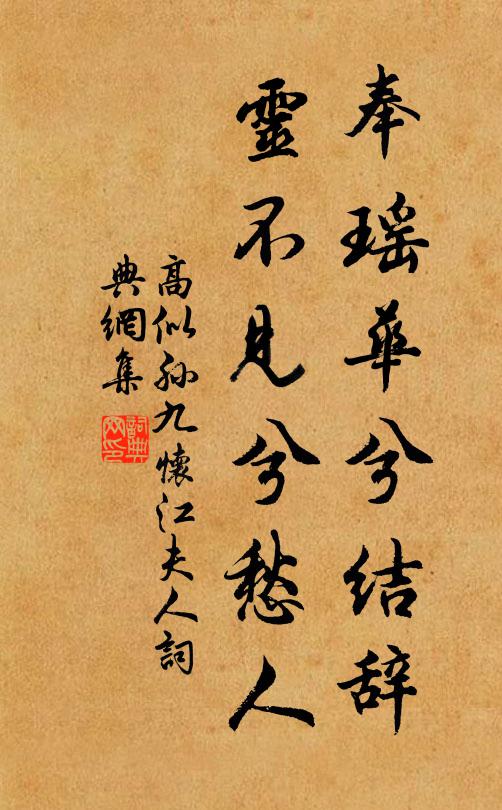 奉瑶華兮结辞
靈不見兮愁人
高似孙九懷江夫人詞
典網集
詞典網印